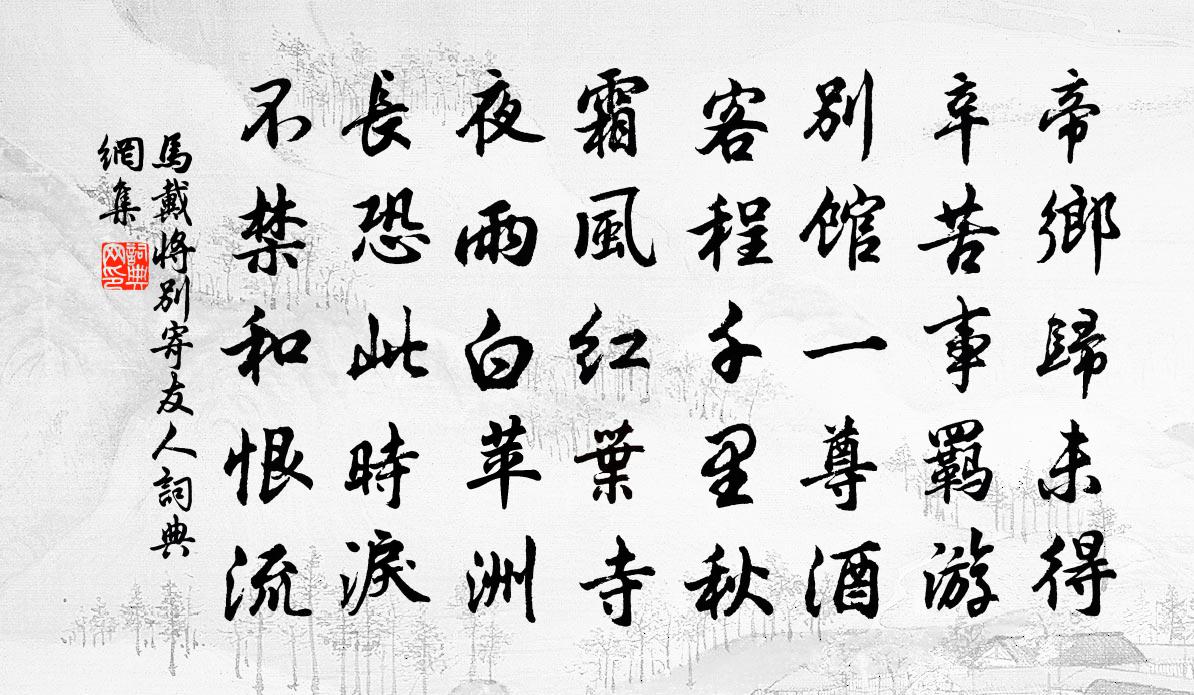 帝鄉歸未得
辛苦事羈游
別館一尊酒
客程千里秋
霜風紅葉寺
夜雨白苹洲
長恐此時淚
不禁和恨流
馬戴將別寄友人詞典
網集
詞典
网印